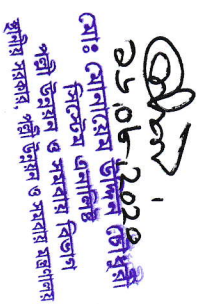 ১৮.০৮.২০২০
মোঃ মোনায়েম উদ্দিন চৌধুরী
সিস্টেম এনালিস্ট
পল্লী উন্নয়ন ও সমবায় বিভাগ
স্থানীয় সরকার, পল্লী উন্নয়ন ও সমবায় মন্ত্রণালয়